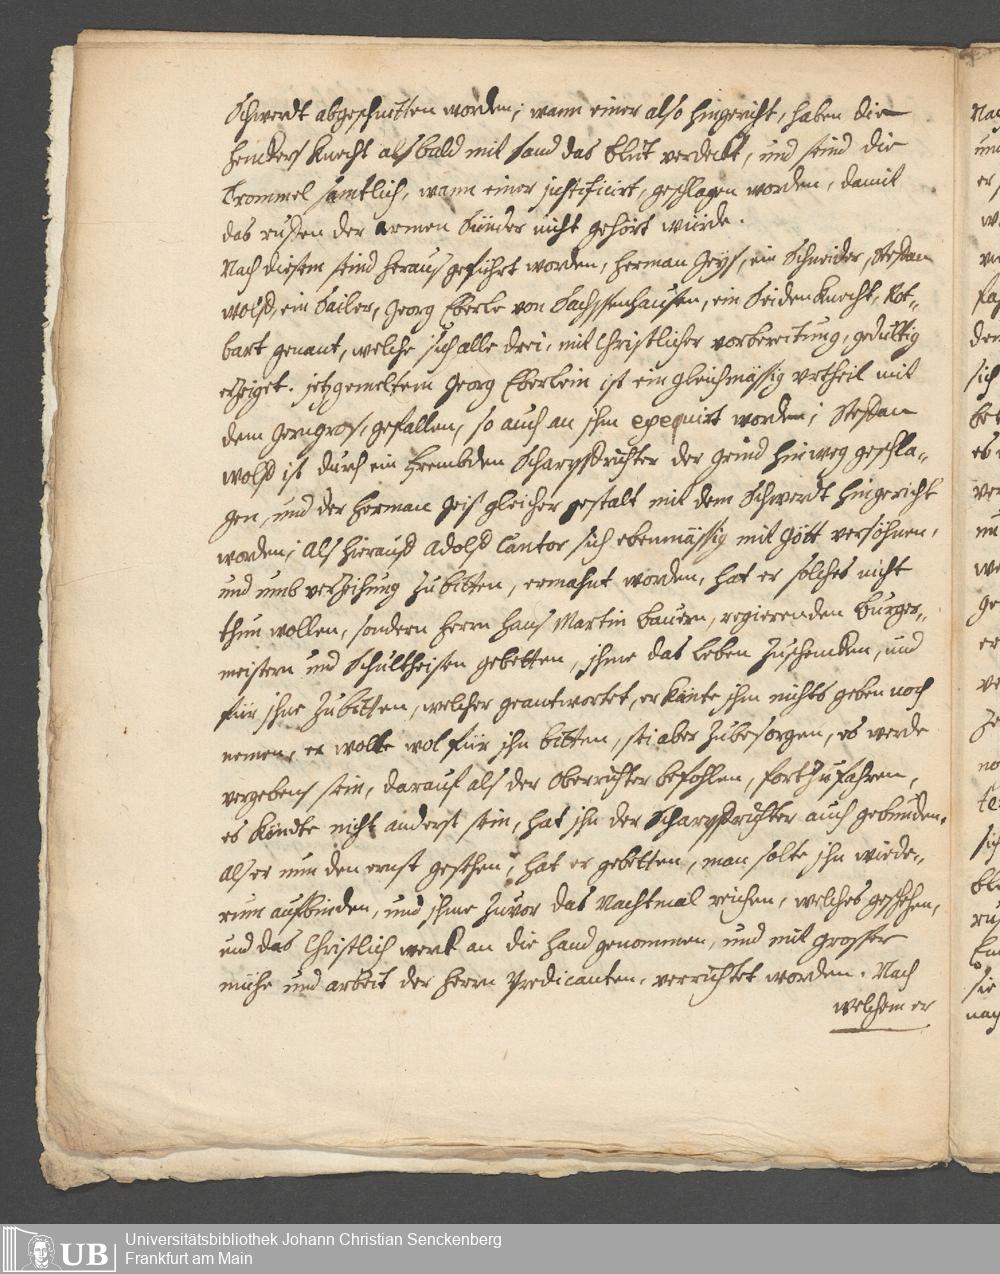 Schwerdt abgeschnitten worden; wann einer also hingericht, haben die
henckers Knecht alsbald mit sand das blut verdeckt, und seind die
Trommel sämtlich, wann einer justificirt, geschlagen worden, damit
das ruffen der armen Sünder nicht gehört würde.
Nach diesem seind heraus geführt worden, Herman Geyß, ein Schneider, Steffan
Wolff, ein Sailer, Georg Eberle von Sachssenhausen, ein Seiden Knecht, Rot-
bart genant, welche sich alle drei, mit Christlicher vorbereitung, gedultig
erzeiget. jetzgemeltem Georg Eberlein ist ein gleichmässig urtheil mit
dem Gerngros, gefallen, so auch an ihm exequirt worden; Steffan
Wolff ist durch ein frembden Scharpffrichter der Grind hinweg geschla-
gen, und der Herman Geiß gleicher gestalt mit dem Schwerdt hingericht
worden; Als hierauff Adolff Cantor sich ebenmässig mit Gott versöhnen,
und umb verzeihung zu bitten, ermahnt worden, hat er solches nicht
thun wollen, sondern Herrn Hans Martin Bauern, regierenden Burger-
meistern und Schultheisen gebetten, ihme das Leben zuschencken, und
für ihne zu bitten, welcher geantwortet, er könte ihm nichts geben noch
nemen, er wolte wol für ihn bitten, sei aber zubesorgen, es werde
vergebens sein, darauf als der Oberrichter befohlen, fortzufahren,
es köndte nicht anderst sein, hat ihn der Scharpffrichter auch gebunden.
als er nun den ernst gesehen, hat er gebetten, man solte ihn wiede-
rum aufbinden, und ihme zuvor das Nachtmal reichen, welches geschehen,
und das Christlich werk an die hand genommen, und mit grosser
mühe und arbeit der Herrn Predicanten, verrichtet worden. Nach
welchem er
UB
Universitätsbibliothek Johann Christian Senckenberg
Frankfurt am Main